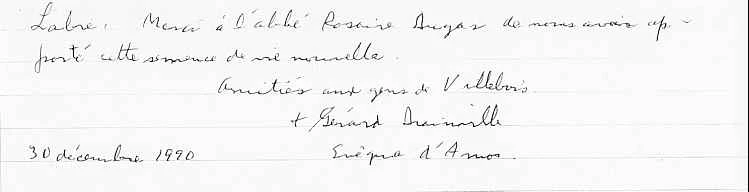 Labre. Merci à l'abbé Rosaire Dugas de nous avoir ap-
porté cette semence de vie nouvelle.
Amitiés aux gens de Villebois.
+ Gérard Drainville
30 décembre 1990 Evêque d'Amos.